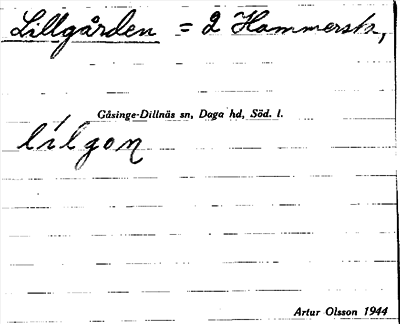 Lillgården = 2 Hammersta,
Gåsinge-Dillnäs sn, Daga hd, Söd. l.
lílgon
Artur Olsson 1944